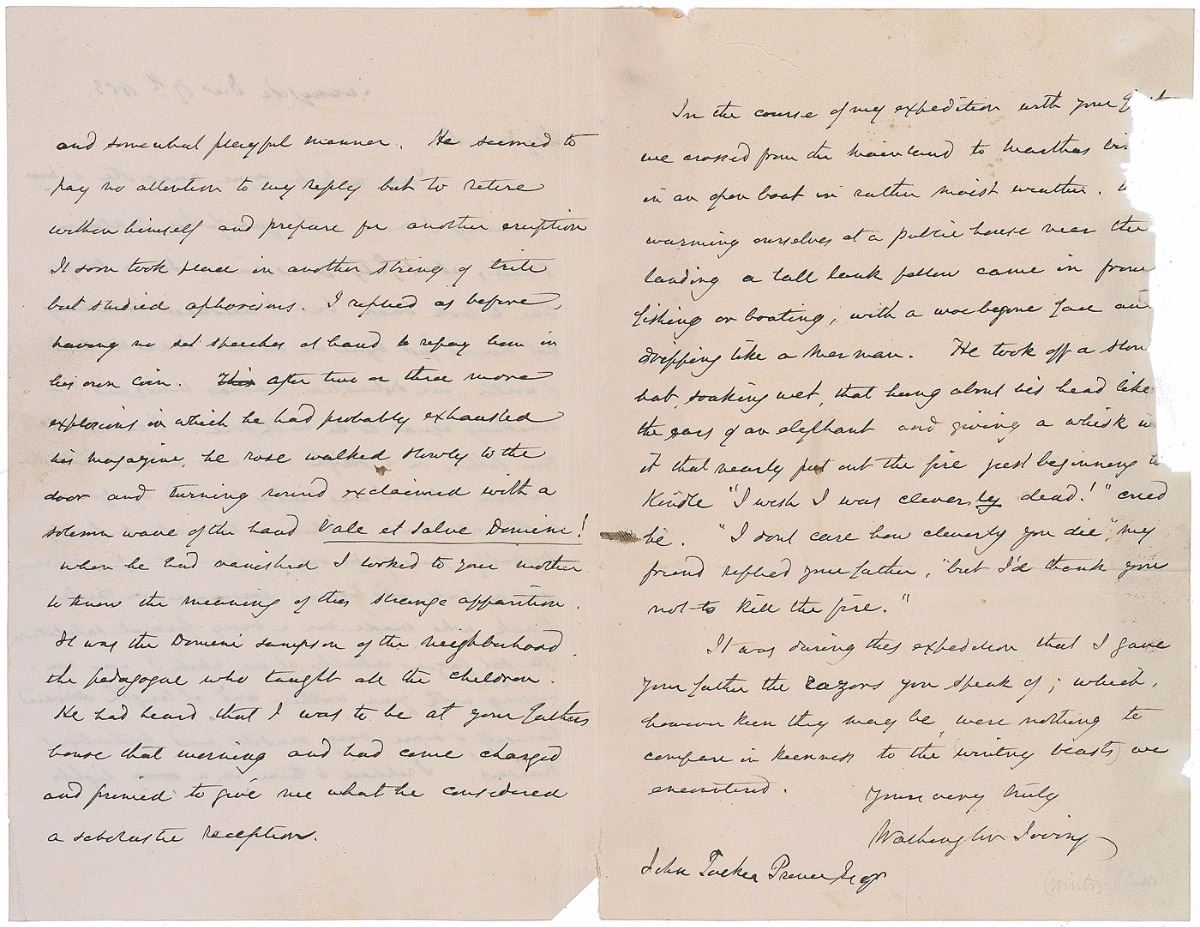 and somewhat playful manner. He seemed to
pay no attention to my reply but to retire
within himself and prepare for another eruption
It soon took place in another string of trite
but studied aphorisms. I replied as before
having no set speeches at hand to repay him in
his own coin. This after two or three more
explosions in which he had probably exhausted
his magazine, he rose walked slowly to the
door and turning round exclaimed with a
solemn wave of the hand Vale et salve Domine!
When he had vanished I looked to your mother
to know the meaning of this strange apparition.
It was the Domini Sampson of the neighborhood,
the pedagogue who taught all the children.
He had heard that I was to be at your fathers
house that morning and had come charged
and primed to give me what he considered
a scholastic reception.
In the course of my expedition with your
we crossed from the mainland to Marthas
in an open boat in rather moist weather.
warming ourselves at a public house near the
landing a tall lank fellow came in from
fishing or boating, with a woe begone face and
dripping like a Merman. He took off a
hat, soaking wet, that hung about his head like
the ears of an elephant and giving a whisk
it that nearly put out the fire just beginning to
Kindle "I wish I was cleverly dead!" cried
he. "I dont care how cleverly you die", my
friend replied your father, "but I'd thank you
not to kill the fire."
It was during this expedition that I gave
your father the razors you speak of; which,
however keen they may be, were nothing to
compare in keenness to the wintry blasts we
encountered.
Yours very truly
Washington Irving
John Tucker Esqr